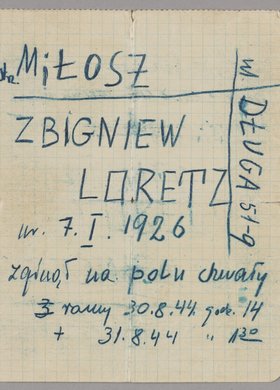 str. MIŁOSZ
ZBIGNIEW
LORETZ
ur. 7. I. 1926
zginął na polu chwały
3 ranny 30.8.44. godz. 14
+ 31.8.44 " 1³⁰
ul. DŁUGA 51-9